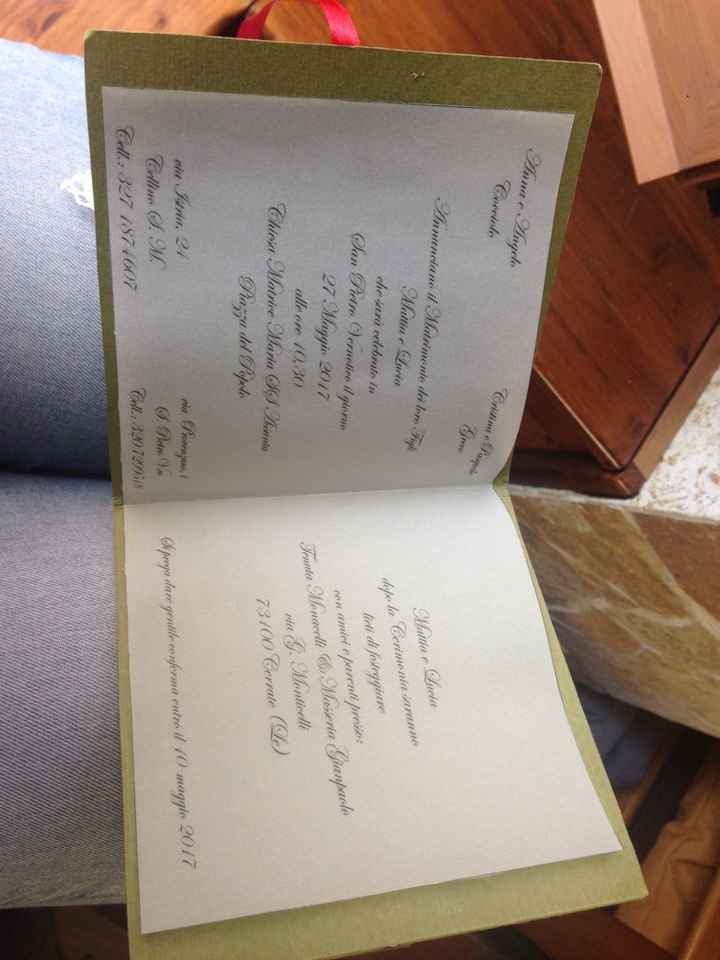 Anna e Angelo
Cocciolo
Cristina e
Annunciano il Matrimonio dei loro Figli
Mattia e Lucia
che sarà celebrato in
San Pietro Vernotico il giorno
27 Maggio 2017
alle ore 10,30
Chiesa Matrice Maria SS Assunta
Piazza del Popolo
via Isria, 24
Cellino S. M.
Cell.: 327 1874607
via
S. Pietro V.co
Cell.:
Mattia e Lucia
dopo la Cerimonia saranno
lieti di festeggiare
con amici e parenti presso:
Tenuta Monacelli & Masseria Gianpaolo
via G. Monticelli
73100 Cerrate (Le)
Si prega dare gentile conferma entro il 10 maggio 2017